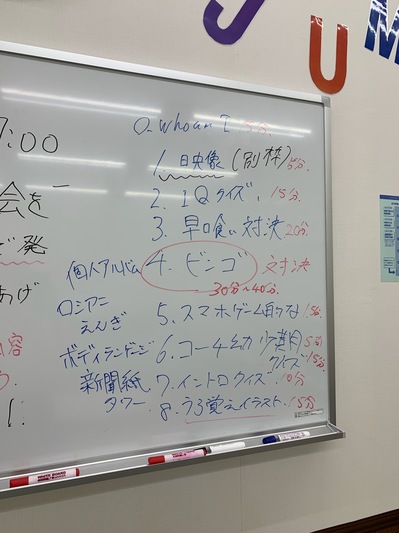 J U M
7:00
会を
発
あげ
内容
0. who am I 5分.
1. 映像 (別枠) 5分.
2. IQクイズ. 15分.
3. 早口喰い対決 20分
個人アルバム 4. ビンゴ 対決
30分~40分.
ロシアン
えんぎ
5. スマホゲーム 15分.
ボディランゲージ 6. コーチ幼少期 5分
クイズ 15分
新聞紙
タワー
7. イントロクイズ. 10分
8. うろ覚えイラスト. 15分